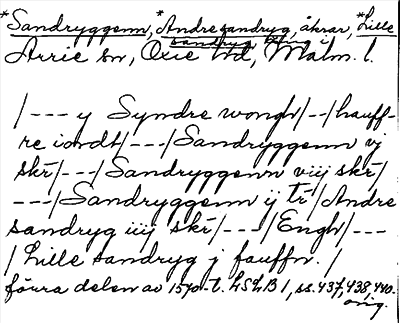 *Sandryggenn, *Andre sandryg, åkrar, *Lille
sandryg, äng i
Arrie sn, Oxie hd, Malm. l.
/--- y Syndre wongh/--/hauff-
re iordt/---/Sandryggenn vj
skr/---/Sandryggenn viij skr/
---/Sandryggenn ij tr/Andre
sandryg iiij skr/---/Engh/---
/Lille sandryg j fauffn. /
förra delen av 1570-t. LSLB 1, ss. 437, 438, 440.
orig.